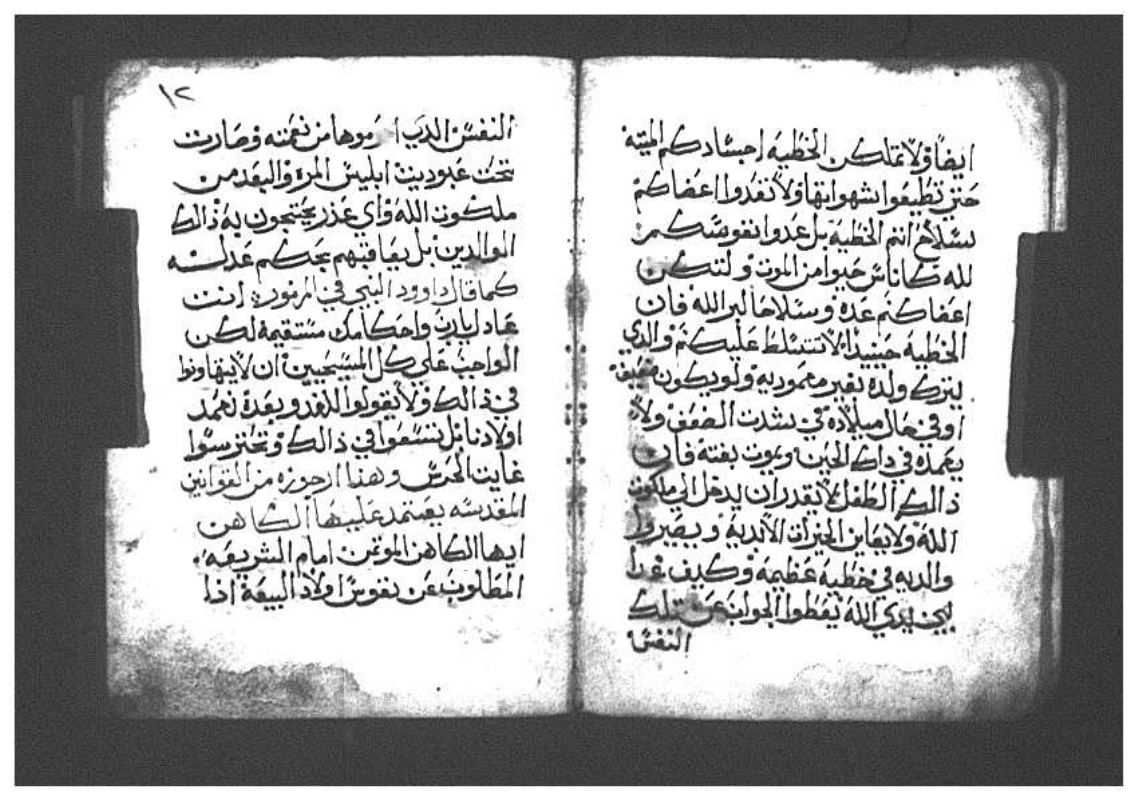 ايضًا ولا تملكن الخطيه اجسادكم الميته
حتى تطيعوا بشهواتها ولا تعدوا اعضاكم
سلاح اتم الخطيه بل عدوا نفوسكم
لله كاناس حيوا من الموت ولتكن
اعضاكم عده وسلاحا لبر الله فان
الخطيه حينيدًا لا تتسلط عليكم والدي
يترك ولده بغير معموديه ولو يكون ضعيف
اوفي حال ميلاده في شدت الضعف ولا
يعمده في داك الحين ويموت بغته فان
ذالك الطفل لا يقدر ان يدخل الي ملكوت
الله ولا يعاين الخيرات الابديه ويصيروا
والديه في خطيه عظيمه وكيف غدا
بين يدي الله يعطوا الجواب عن تلك
النفس
١٢
النفس الدي من نعمته وصارت
تحت عبوديت ابليس المره والبعد من
ملكوت الله واي عذر يحتجون به ذالك
الوالدين بل يعاقبهم بحكم عدله
كما قال داوود النبي في المزمور انت
عادل يارب واحكامك مستقيمة لكن
الواجب علي كل المسيحيين ان لا يتهاونوا
في ذالك ولا يقولوا للغد وبعده نعمد
اولادنا بل يسعوا في ذالك ويحترسوا
غايت الحرس وهذا ارجوزه من القوانين
المقدسه يعتمد عليها الكاهن
ايها الكاهن الموتمن امام الشريعه
المطلوب عن نفوس اولاد البيعة اذا